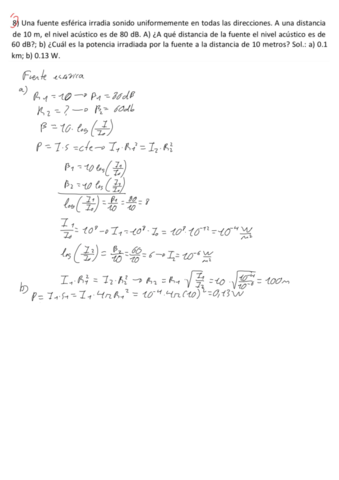 8) Una fuente esférica irradia sonido uniformemente en todas las direcciones. A una distancia
de 10 m, el nivel acústico es de 80 dB. A) ¿A qué distancia de la fuente el nivel acústico es de
60 dB?; b) ¿Cuál es la potencia irradiada por la fuente a la distancia de 10 metros? Sol.: a) 0.1
km; b) 0.13 W.
Fuente esférica
a)
R₁ = 10 → β₁ = 80 dB
R₂ = ? → β₂ = 60 db
β = 10 · log (I/I₀)
P = I · S = cte → I₁ · R₁² = I₂ · R₂²
β₁ = 10 log (I₁/I₀)
β₂ = 10 log (I₂/I₀)
log (I₁/I₀) = β₁/10 = 80/10 = 8
I₁/I₀ = 10⁸ → I₁ = 10⁸ · I₀ = 10⁸ 10⁻¹² = 10⁻⁴ W/m²
log (I₂/I₀) = β₂/10 = 60/10 = 6 → I₂ = 10⁻⁶ W/m²
I₁ · R₁² = I₂ · R₂² → R₂ = R₁ √(I₁/I₂) = 10 · √(10⁻⁴/10⁻⁶) = 100 m
b)
P = I₁ · S₁ = I₁ · 4π R₁² = 10⁻⁴ · 4π (10)² = 0,13 W